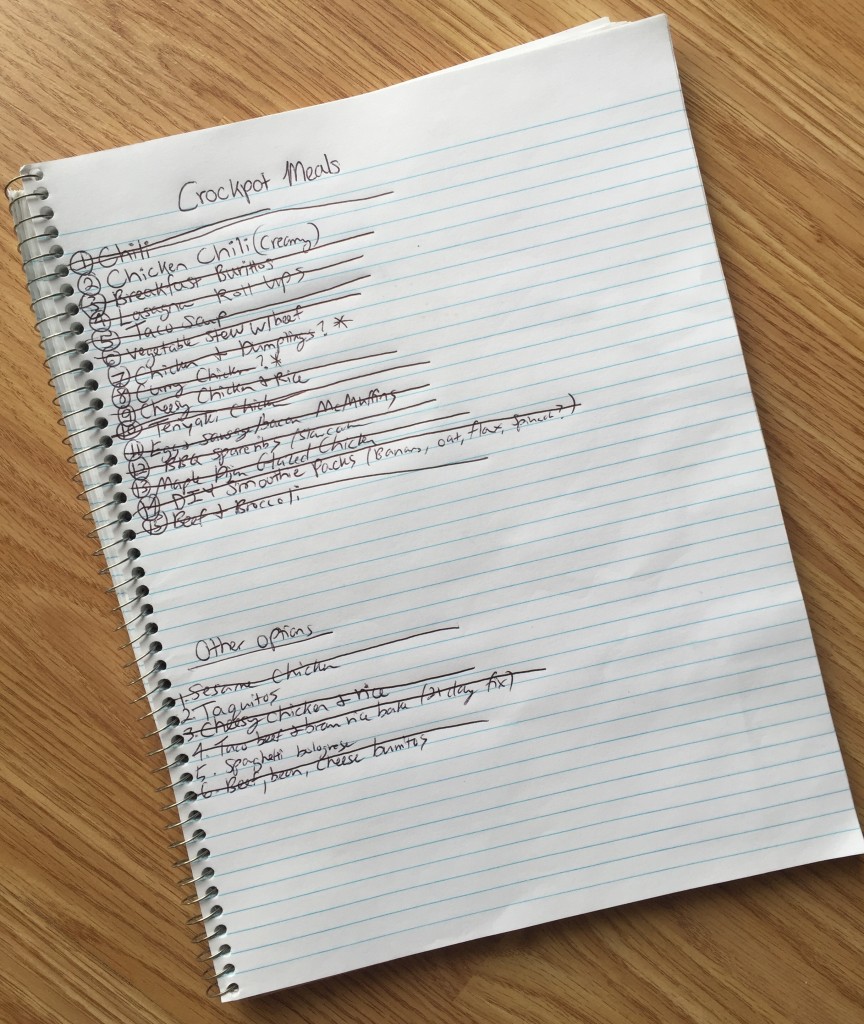 Crockpot Meals
① Chili
② Chicken Chili (Creamy)
③ Breakfast Burittos
④ Lasagna Roll Ups
⑤ Taco Soup
⑥ Vegetable Stew w/beef
⑦ Chicken & Dumplings? *
⑧ Curry Chicken? *
⑨ Cheesy Chicken & Rice
⑩ Teriyaki Chicken
⑪ Egg & sausage/bacon McMuffins
⑫ BBQ spareribs
⑬ Maple Glazed Chicken
⑭ DIY Smoothie Packs (Banana, oat, flax, spinach?)
⑮ Beef & Broccoli
Other options
1. Sesame Chicken
2. Taquitos
3. Cheesy Chicken & rice
4. Taco beef & brown rice bake (21 day fix)
5. Spaghetti bolognese
6. Beef, bean, cheese burritos